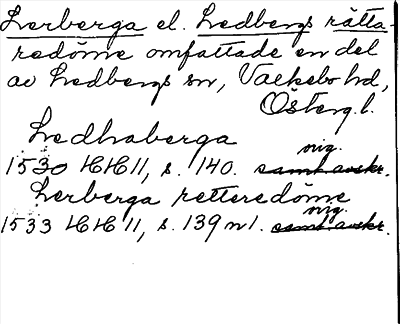 Lerberga el. Ledbergs rätta-
redöme omfattade en del
av Ledbergs sn, Valkebo hd,
Österg. l.
Ledhaberga
orig.
1530 HH 11, s. 140. samt avskr.
Lerberga retteredöme
orig.
1533 HH 11, s. 139 n 1. samt avskr.